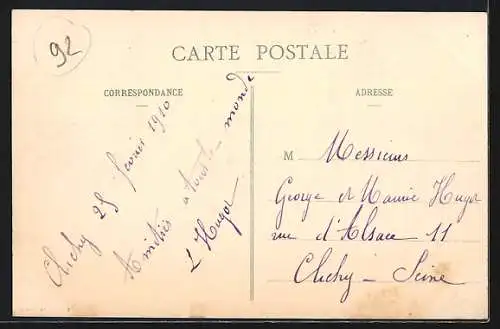 92
CARTE POSTALE
CORRESPONDANCE
Clichy 25 février 1910
Amitiés à tout le monde
L Hugot
ADRESSE
M Messieurs
George et Maurice Hugot
rue d'Alsace 11
Clichy - Seine